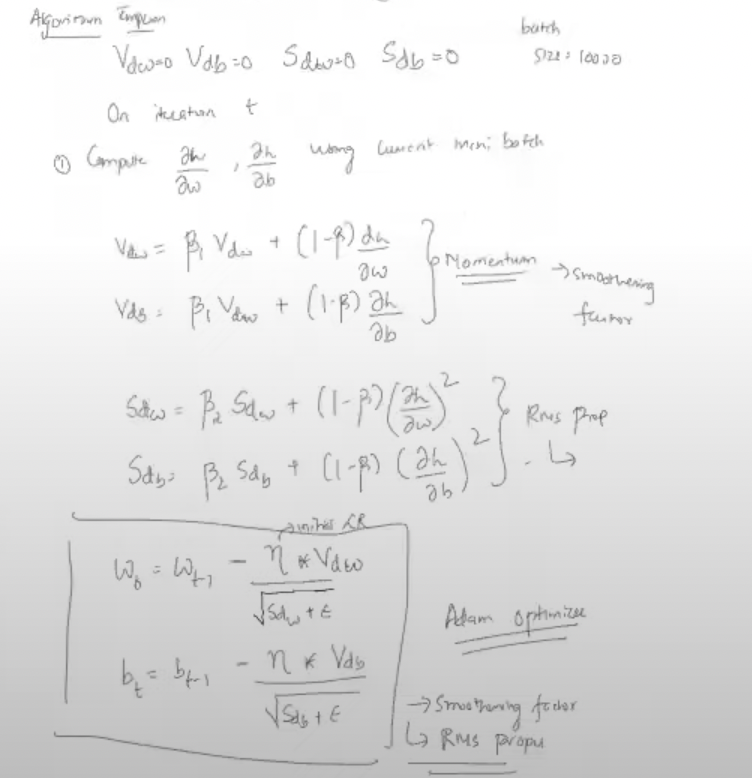 Algorithm
V_dw=0 V_db=0 S_dw=0 S_db=0
batch
size: 10000
On iteration t
① Compute ∂h/∂w , ∂h/∂b using current mini batch
V_dw = β₁ V_dw + (1-β) dh/∂w
V_db = β₁ V_dw + (1-β) ∂h/∂b
Momentum → smoothening
factor
S_dw = β₂ S_dw + (1-β) (∂h/∂w)²
S_db = β₂ S_db + (1-β) (∂h/∂b)²
Rms prop
↳
→ initial LR
w_t = w_t-1 - η * V_dw / √(S_dw + ε)
b_t = b_t-1 - η * V_db / √(S_db + ε)
Adam optimizer
→ Smoothening factor
↳ Rms